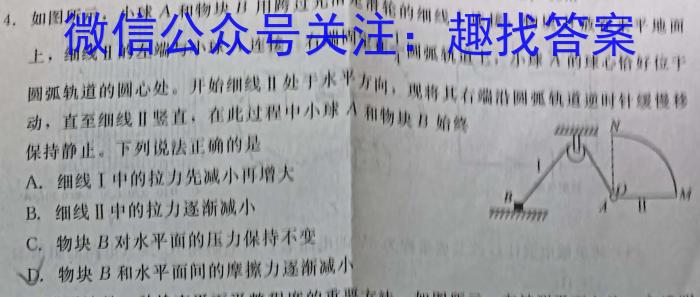 4. 如图所示,小球 A 和物块 B 用跨过光滑定滑轮的细线
平地面
微信公众号关注:趣找答案
上,细线 Ⅱ
圆弧轨道
小球 A 的球心恰好位于
圆弧轨道的圆心处。开始细线 Ⅱ 处于水平方向,现将其右端沿圆弧轨道逆时针缓慢移
动,直至细线 Ⅱ 竖直,在此过程中小球 A 和物块 B 始终
保持静止。下列说法正确的是
A. 细线 Ⅰ 中的拉力先减小再增大
B. 细线 Ⅱ 中的拉力逐渐减小
C. 物块 B 对水平面的压力保持不变
D. 物块 B 和水平面间的摩擦力逐渐减小
N
Ⅰ
B
A
O
Ⅱ
M